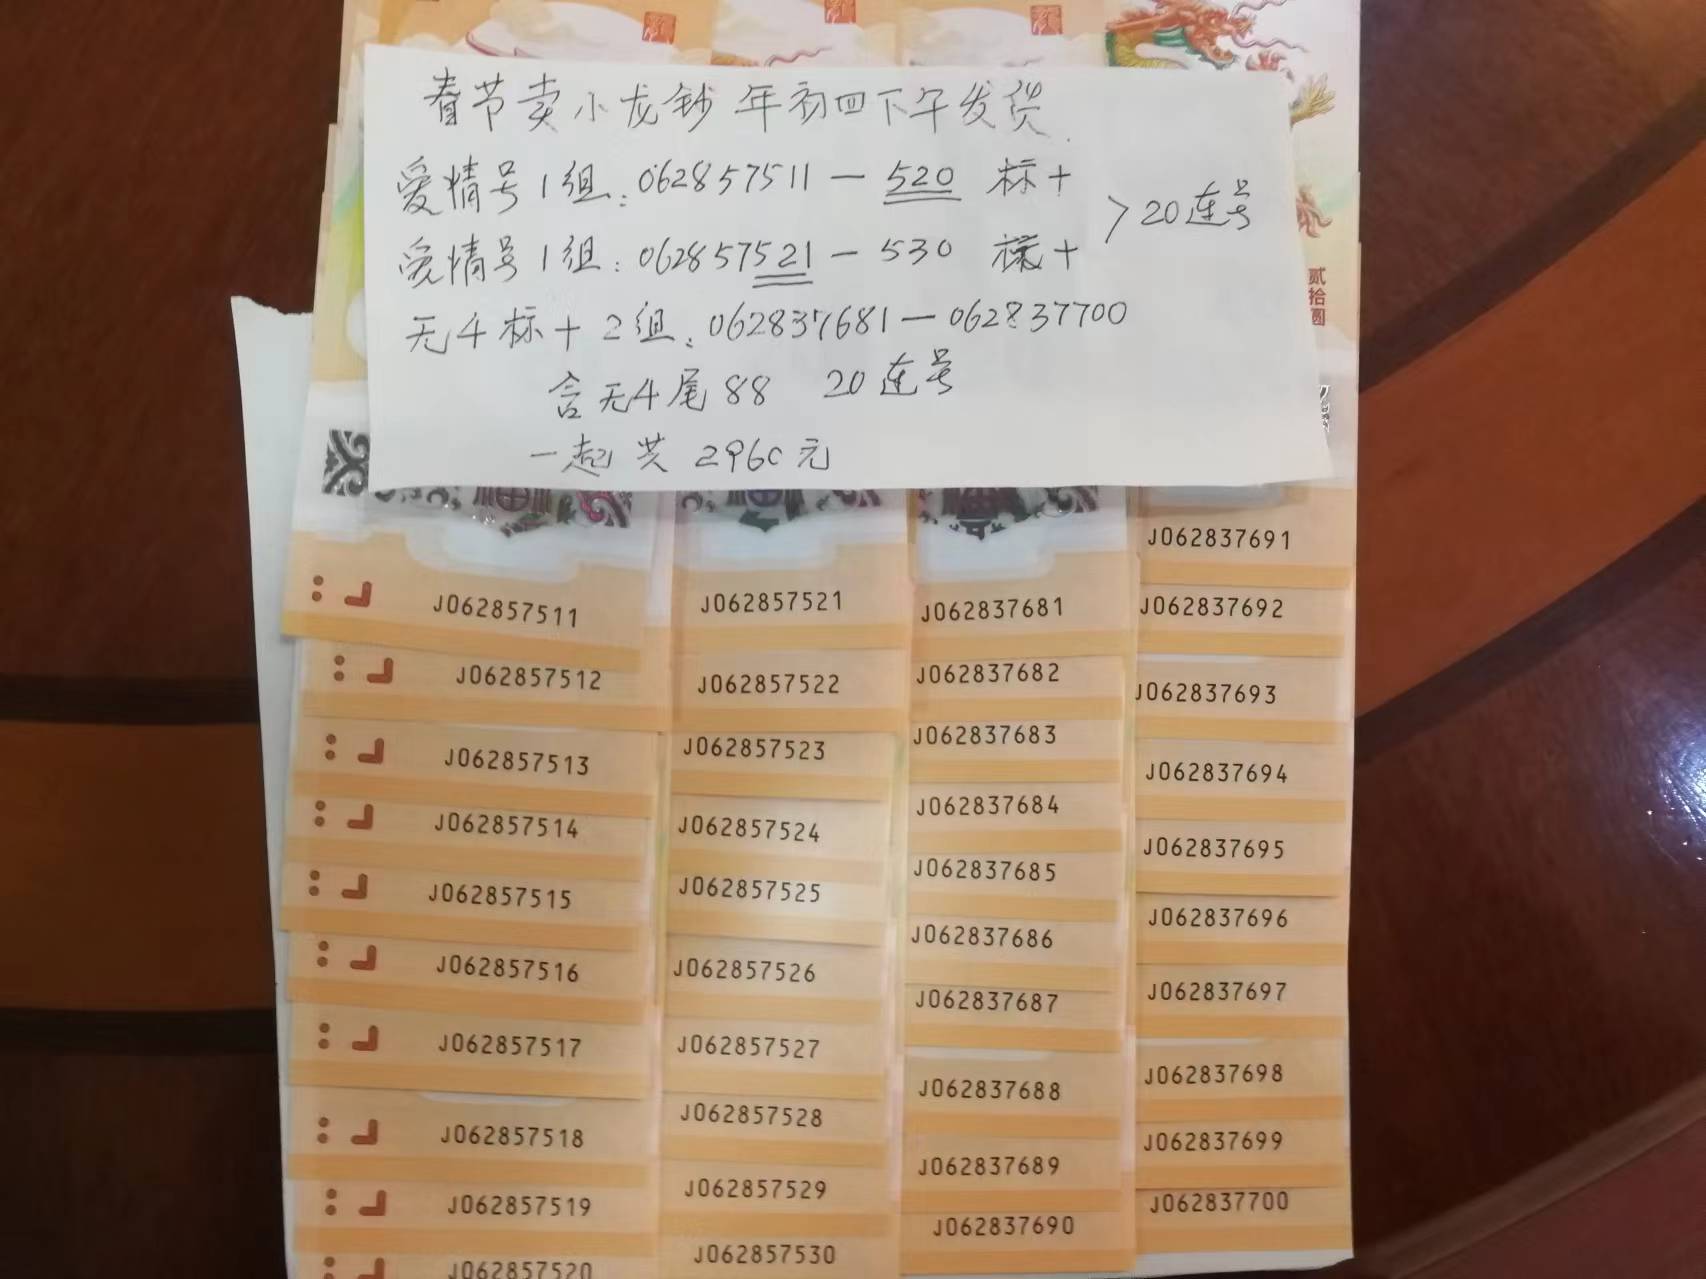 春节卖小龙钞 年初四下午发货.
爱情号1组: 062857511-520 标十
>20连号
爱情号1组: 062857521-530 标十
无4标十2组: 062837681-062837700
含无4尾88 20连号
一起共2960元
贰拾圆
J062857511
J062857512
J062857513
J062857514
J062857515
J062857516
J062857517
J062857518
J062857519
J062857520
J062857521
J062857522
J062857523
J062857524
J062857525
J062857526
J062857527
J062857528
J062857529
J062857530
J062837681
J062837682
J062837683
J062837684
J062837685
J062837686
J062837687
J062837688
J062837689
J062837690
J062837691
J062837692
J062837693
J062837694
J062837695
J062837696
J062837697
J062837698
J062837699
J062837700